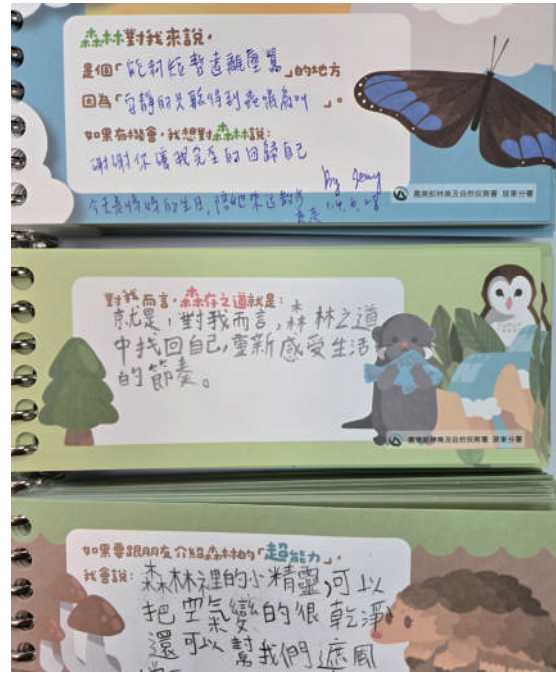 森林對我來說，
是個「能夠短暫遠離塵囂」的地方
因為「安靜的只聽得到蟲鳴鳥叫」。
如果有機會，我想對森林說：
謝謝你讓我完全的回歸自己
by Jenny
今天是媽媽的生日，陪她來這散步
走走 114.6.28
農業部林業及自然保育署 屏東分署
對我而言，森存之道就是：
就是，對我而言，森林之道
中找回自己，重新感受生活
的節奏。
農業部林業及自然保育署 屏東分署
如果要跟朋友介紹森林的「超能力」，
我會說：森林裡的小精靈，可以
把空氣變的很乾淨
還可以幫我們遮風